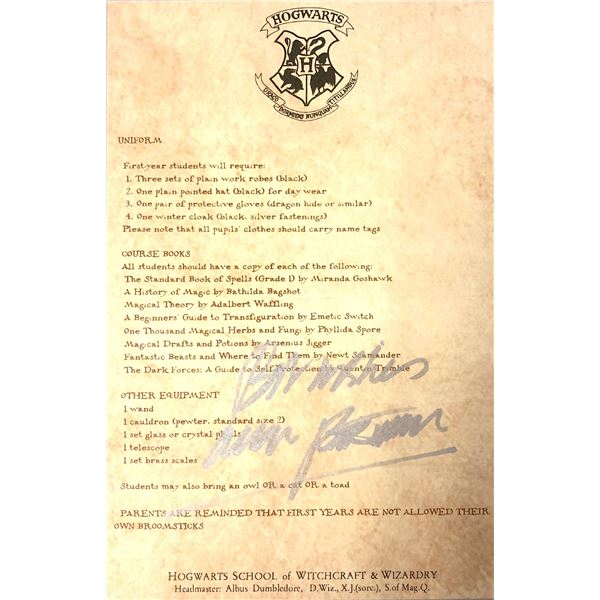 HOGWARTS
H
DRACO DORMIENS NUNQUAM TITILLANDUS
UNIFORM
First-year students will require:
1. Three sets of plain work robes (black)
2. One plain pointed hat (black) for day wear
3. One pair of protective gloves (dragon hide or similar)
4. One winter cloak (black, silver fastenings)
Please note that all pupils' clothes should carry name tags
COURSE BOOKS
All students should have a copy of each of the following:
The Standard Book of Spells (Grade I) by Miranda Goshawk
A History of Magic by Bathilda Bagshot
Magical Theory by Adalbert Waffling
A Beginners' Guide to Transfiguration by Emetic Switch
One Thousand Magical Herbs and Fungi by Phyllida Spore
Magical Drafts and Potions by Arsenius Jigger
Fantastic Beasts and Where to Find Them by Newt Scamander
The Dark Forces: A Guide to Self-Protection by Quentin Trimble
Best wishes
OTHER EQUIPMENT
1 wand
1 cauldron (pewter, standard size 2)
1 set glass or crystal phials
1 telescope
1 set brass scales
Students may also bring an owl OR a cat OR a toad
PARENTS ARE REMINDED THAT FIRST YEARS ARE NOT ALLOWED THEIR
OWN BROOMSTICKS
HOGWARTS SCHOOL of WITCHCRAFT & WIZARDRY
Headmaster: Albus Dumbledore, D.Wiz., X.J.(sorc.), S.of Mag.Q.